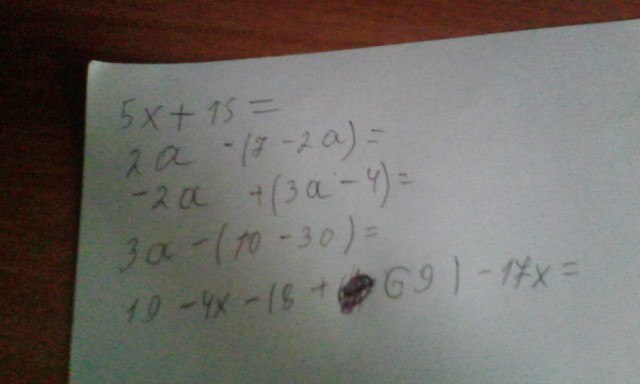 5x + 15 =
2a - (7 - 2a) =
-2a + (3a - 4) =
3a - (10 - 30) =
19 - 4x - 18 + ( 69) - 17x =